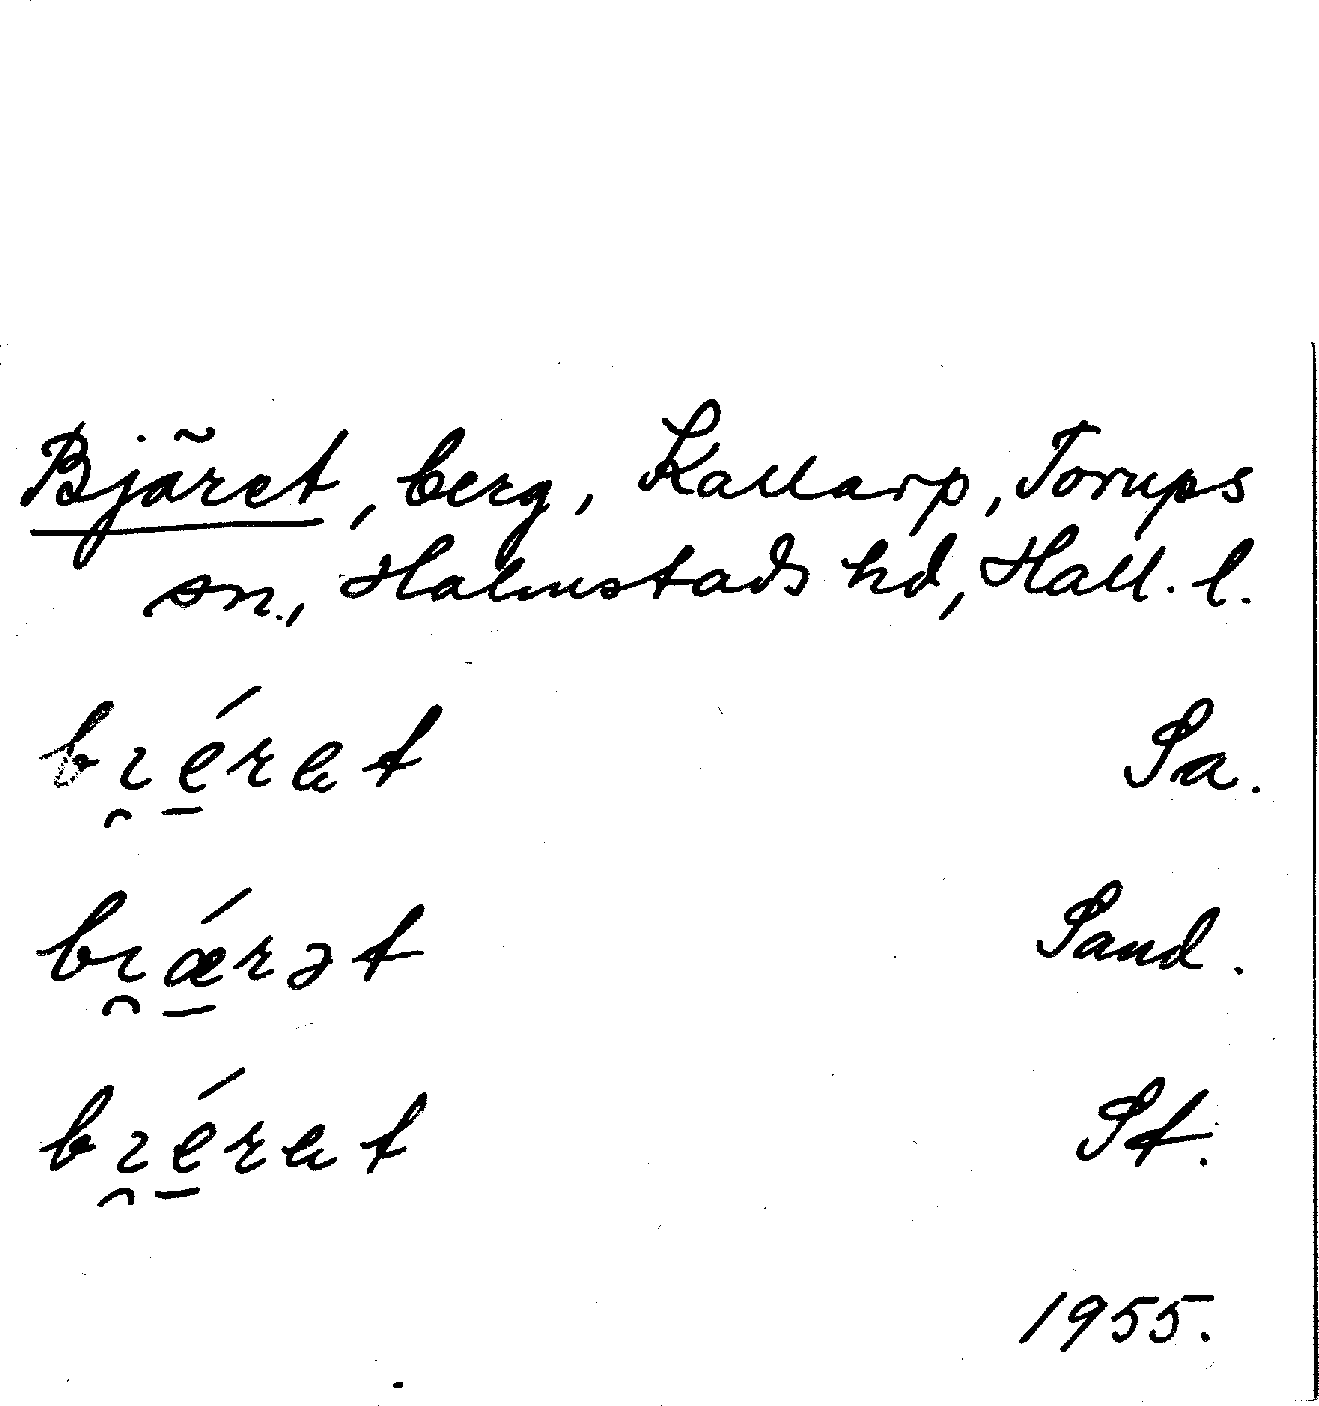 Bjäret, berg, Kallarp, Torups
sn., Halmstads hd, Hall. l.
bı̯é̱rat Sa.
bı̯ǽ̱rət Sand.
bı̯é̱rat St.
1955.